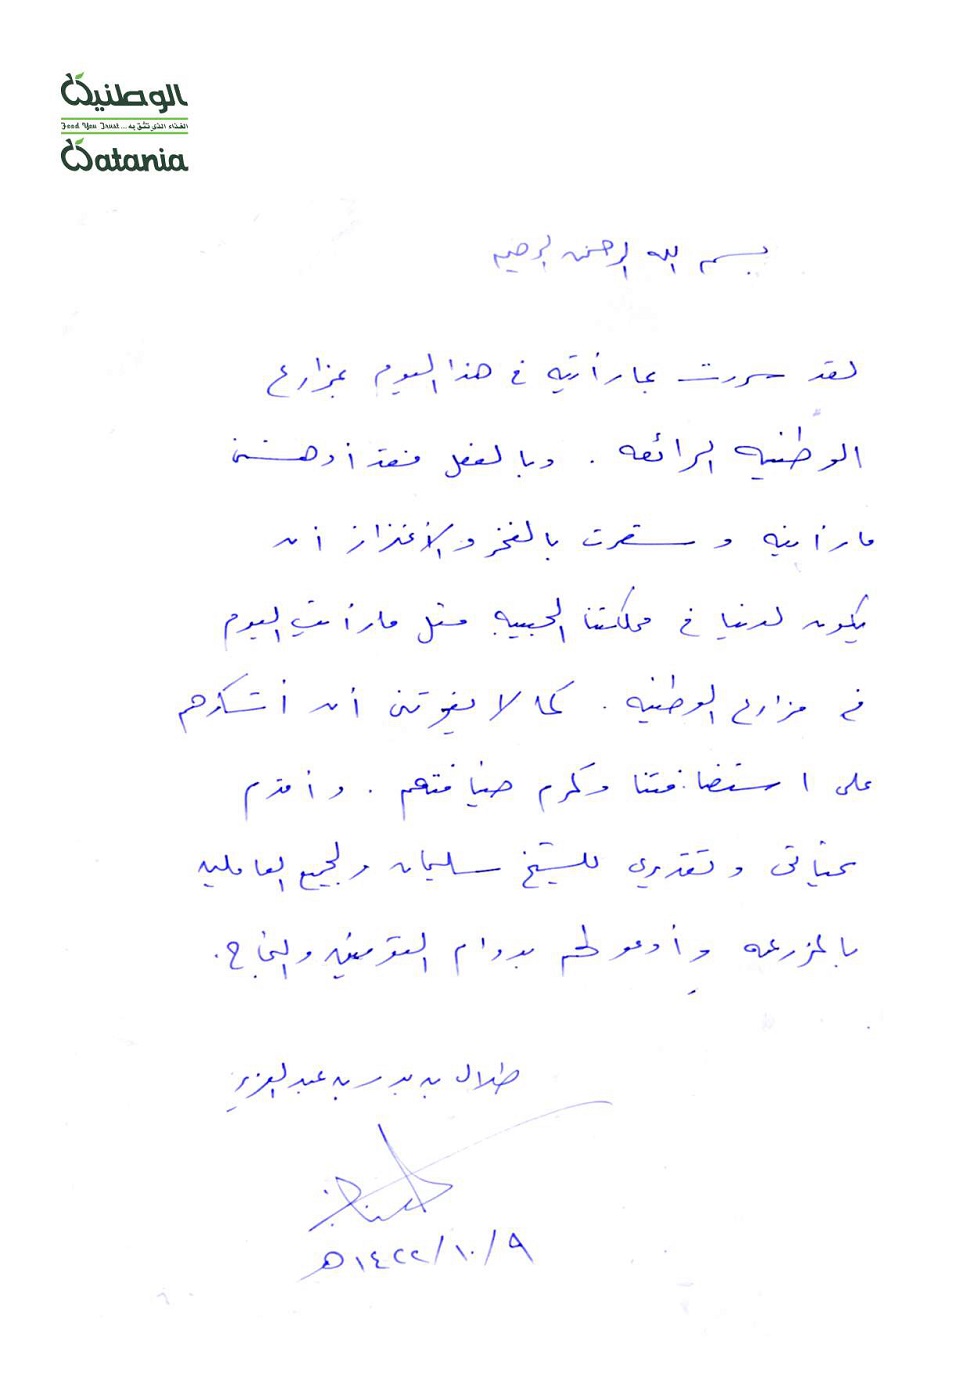 الوطنية
Food You Trust... الغذاء الذي تثق به
Watania
بسم الله الرحمن الرحيم
لقد سررت بما رأيته في هذا اليوم بمزارع
الوطنيه الرائعه . وبالفعل فقد أدهشني
ما رأيته وشعرت بالفخر والأعتزاز أن
يكون لدينا في مملكتنا الحبيبه مثل ما رأيت اليوم
في مزارع الوطنيه . كما لا يفوتني أن أشكرهم
على استضافتنا وكرم ضيافتهم . وأقدم
تحياتي وتقديري للشيخ سليمان ولجميع العاملين
بالمزرعه وأدعو لهم بدوام التوفيق والنجاح .
طلال بن بدر بن عبدالعزيز
٩/١٠/١٤٢٢هـ